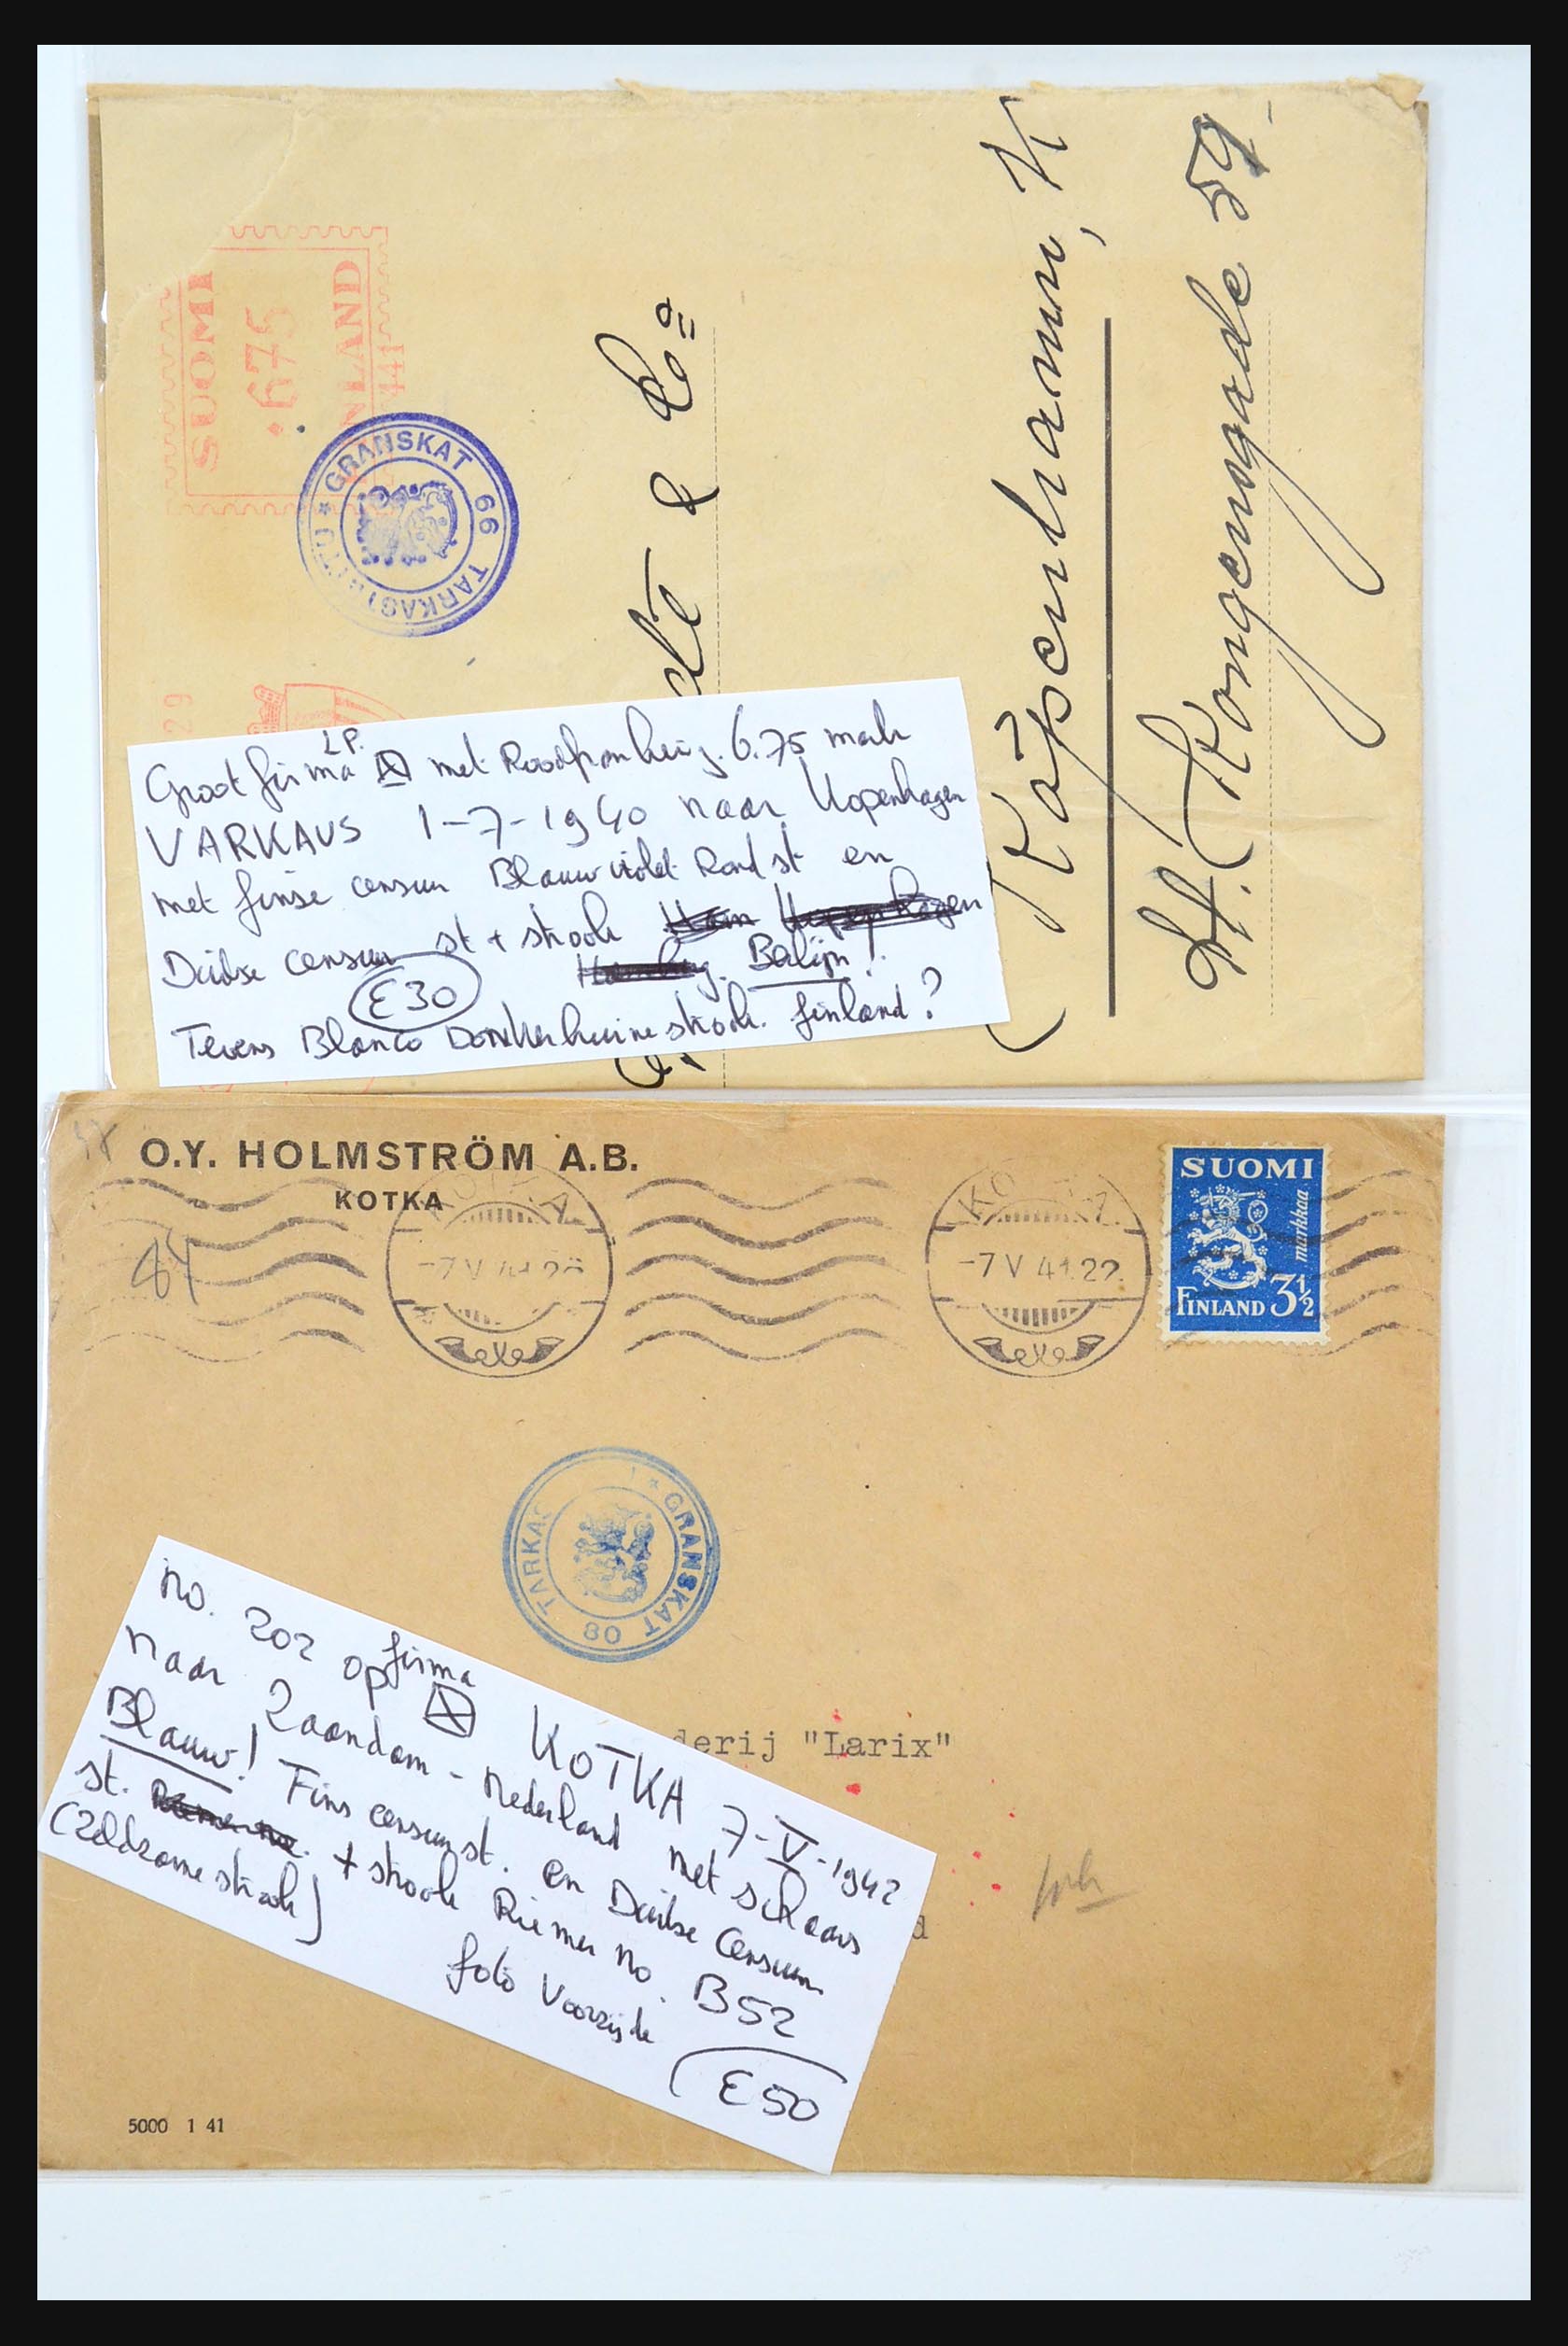 SUOMI
675
NLAND
441
GRANSKAT 66 TARKAST
29
& Co
Köpenhamn, K
St. Kongensgade 59
Groot firma LP. met Roodfrankering. 6.75 mark
VARKAUS 1-7-1940 naar Kopenhagen
met finse censuur Blauwviolet Rond st en
Duitse censuur st + strook
Berlijn!
E30
Tevens Blanco Donkerbruine strook. finland?
O.Y. HOLMSTRÖM A.B.
KOTKA
-7 V 41.22
KOTKA
-7 V 41.22
SUOMI
markkaa
FINLAND 3½
TARKAS * GRANSKAT 08
no. 202 op firma KOTKA 7-V-1942
naar Zaandam - Nederland met schaars
Blauw! Fins censuurst. en Duitse Censuur
st. + strook Riemer no. B52
(Zeldzame strook) foto Voorzijde
E50
derij "Larix"
d
5000 1 41